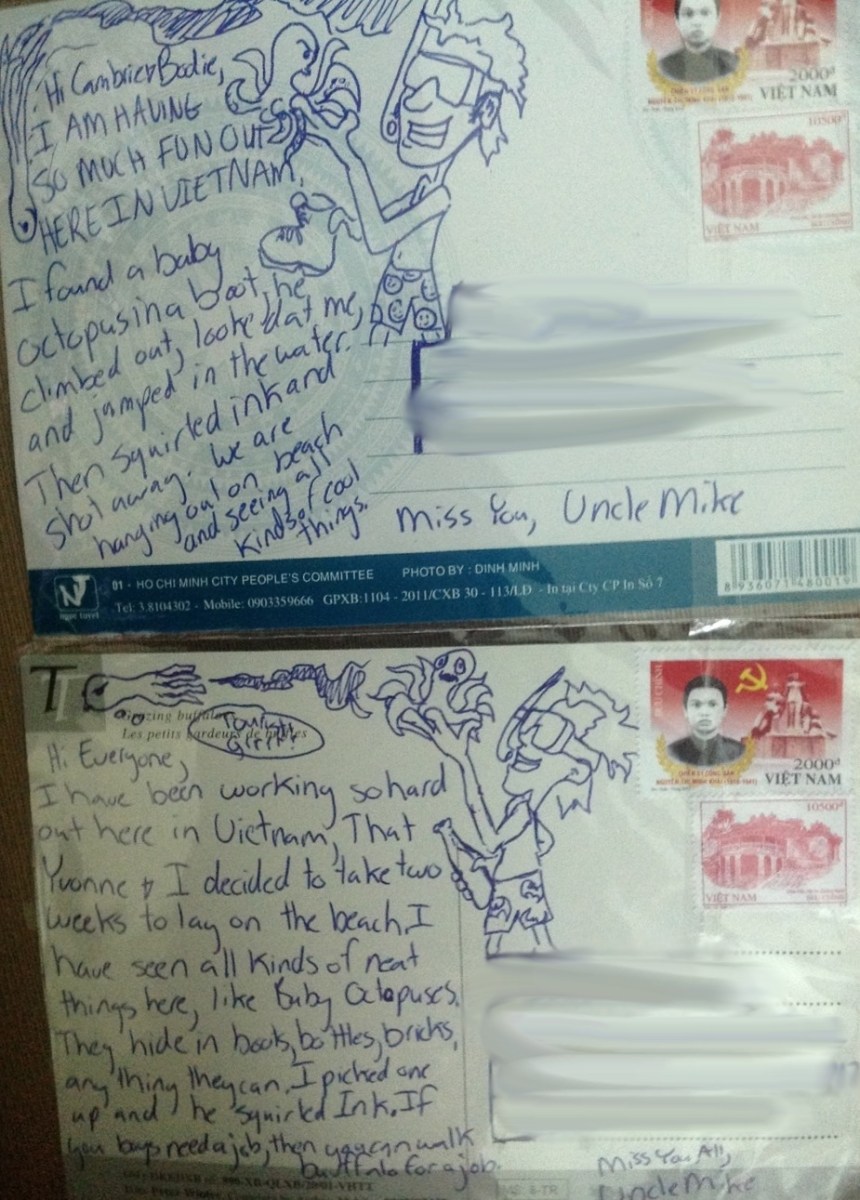 Hi Cambrier Bodie,
I AM HAVING
SO MUCH FUN OUT
HERE IN VIETNAM.
I found a baby
octopus in a boot, he
climbed out, looked at me,
and jumped in the water.
Then squirted ink and
shot away. We are
hanging out on beach
and seeing all
kinds of cool
things.
2000đ
VIỆT NAM
10500đ
VIỆT NAM
Miss You, Uncle Mike
01 - HO CHI MINH CITY PEOPLE'S COMMITTEE PHOTO BY : DINH MINH
Tel: 3.8104302 - Mobile: 0903359666 GPXB:1104 - 2011/CXB 30 - 113/LD - In tại Cty CP In Số 7
8 936071 480019
Les petits gardeurs de
Hi Everyone,
I have been working so hard
out here in Vietnam, That
Yvonne & I decided to take two
weeks to lay on the beach. I
have seen all kinds of neat
things here, like Baby Octopuses.
They hide in boots, bottles, bricks,
any thing they can. I picked one
up and he squirted Ink. If
you boys need a job, then you can walk
buffalo for a job.
BƯU CHÍNH
2000đ
VIỆT NAM
10500đ
VIỆT NAM
Miss You All,
Uncle Mike